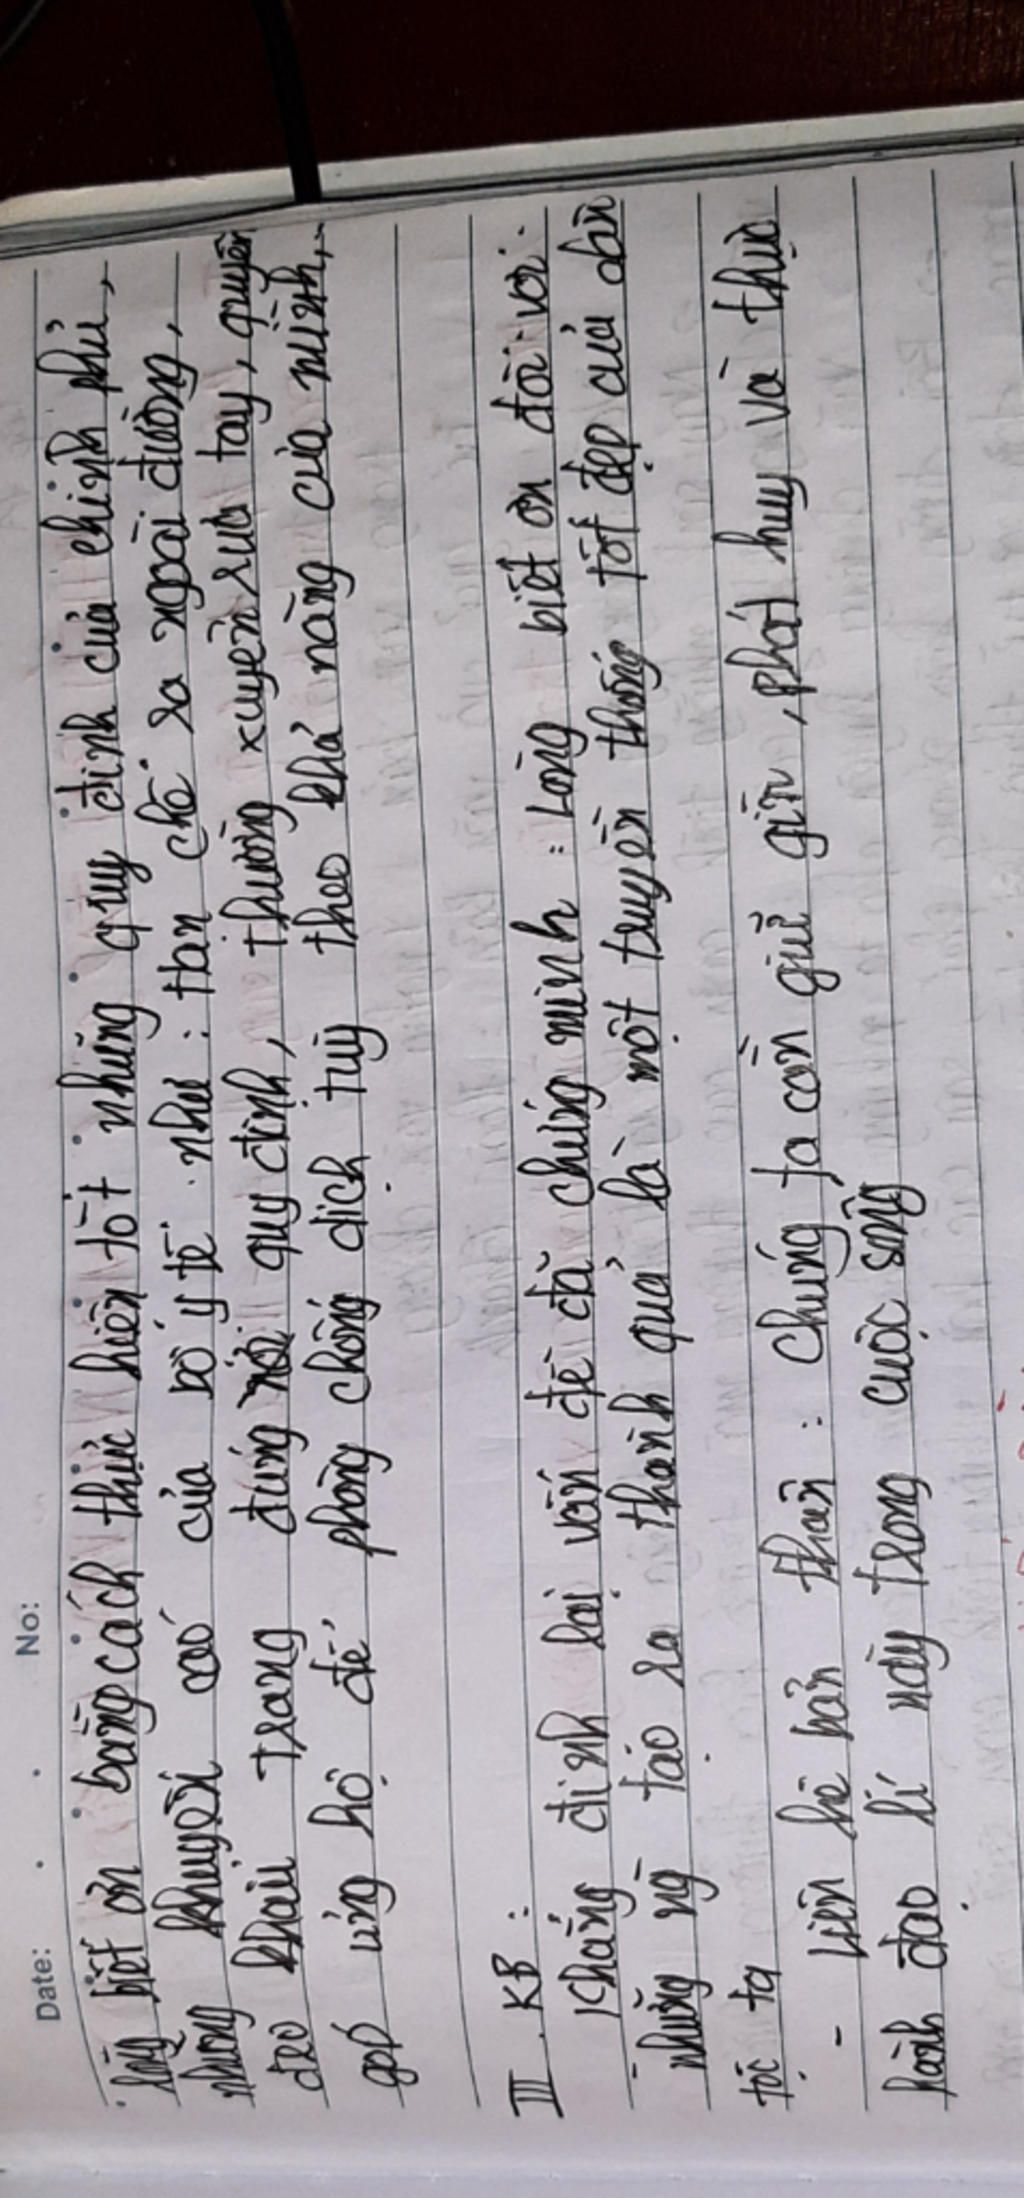 Date: No:
lòng biết ơn bằng cách thực hiện tốt những quy định của chính phủ,
những khuyến cáo của bộ y tế như: hạn chế ra ngoài đường,
đeo khẩu trang đúng nơi quy định, thường xuyên rửa tay, quyên
góp ủng hộ để phòng chống dịch tuỳ theo khả năng của mình,
III. KB:
Khẳng định lại vấn đề đã chứng minh: Lòng biết ơn đối với
những ng tạo ra thành quả là một truyền thống tốt đẹp của dân
tộc ta
- Liên hệ bản thân: Chúng ta cần giữ gìn, phát huy và thực
hành đạo lí này trong cuộc sống